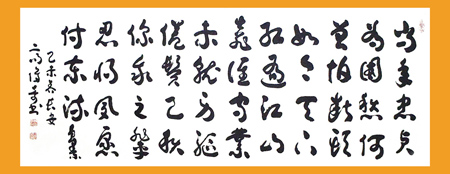 当年忠贞
为国愁何
曾怕断头
如今天下
红遍江山
靠谁守业
未就身躯
倦鬓已秋
你我之辈
忍将夙愿
付东流
己未冬长安